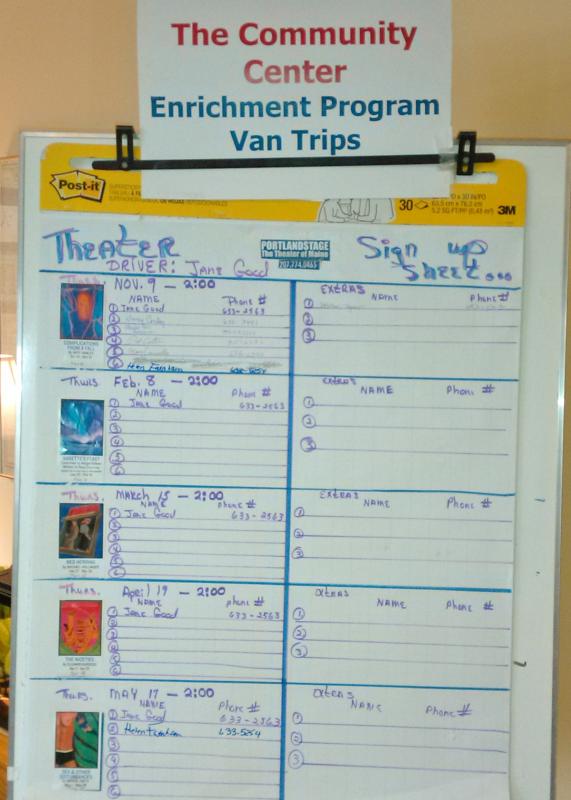 The Community
Center
Enrichment Program
Van Trips
Post-it
30
3M
THEATER
DRIVER: JANE Good
PORTLANDSTAGE
The Theater of Maine
207.774.0465
Sign up
Sheet...
THURS. NOV. 9 - 2:00
NAME Phone #
① Jane Good 633-2563
②
③
④
⑤
⑥
EXTRAS
NAME Phone #
①
②
③
COMPLICATIONS
FROM A FALL
THURS. Feb. 8 - 2:00
NAME Phone #
① Jane Good 633-2563
②
③
④
⑤
⑥
EXTRAS
NAME Phone #
①
②
③
THURS. MARCH 15 - 2:00
NAME Phone #
① Jane Good 633-2563
②
③
④
⑤
⑥
EXTRAS
NAME Phone #
①
②
③
RED HERRING
THURS. April 19 - 2:00
NAME Phone #
① Jane Good 633-2563
②
③
④
⑤
⑥
EXTRAS
NAME Phone #
①
②
③
THE NICETIES
THURS. MAY 17 - 2:00
NAME Phone #
① Jane Good 633-2563
②
③
④
⑤
⑥
EXTRAS
NAME Phone #
①
②
③
SEX & OTHER
DISTURBANCES